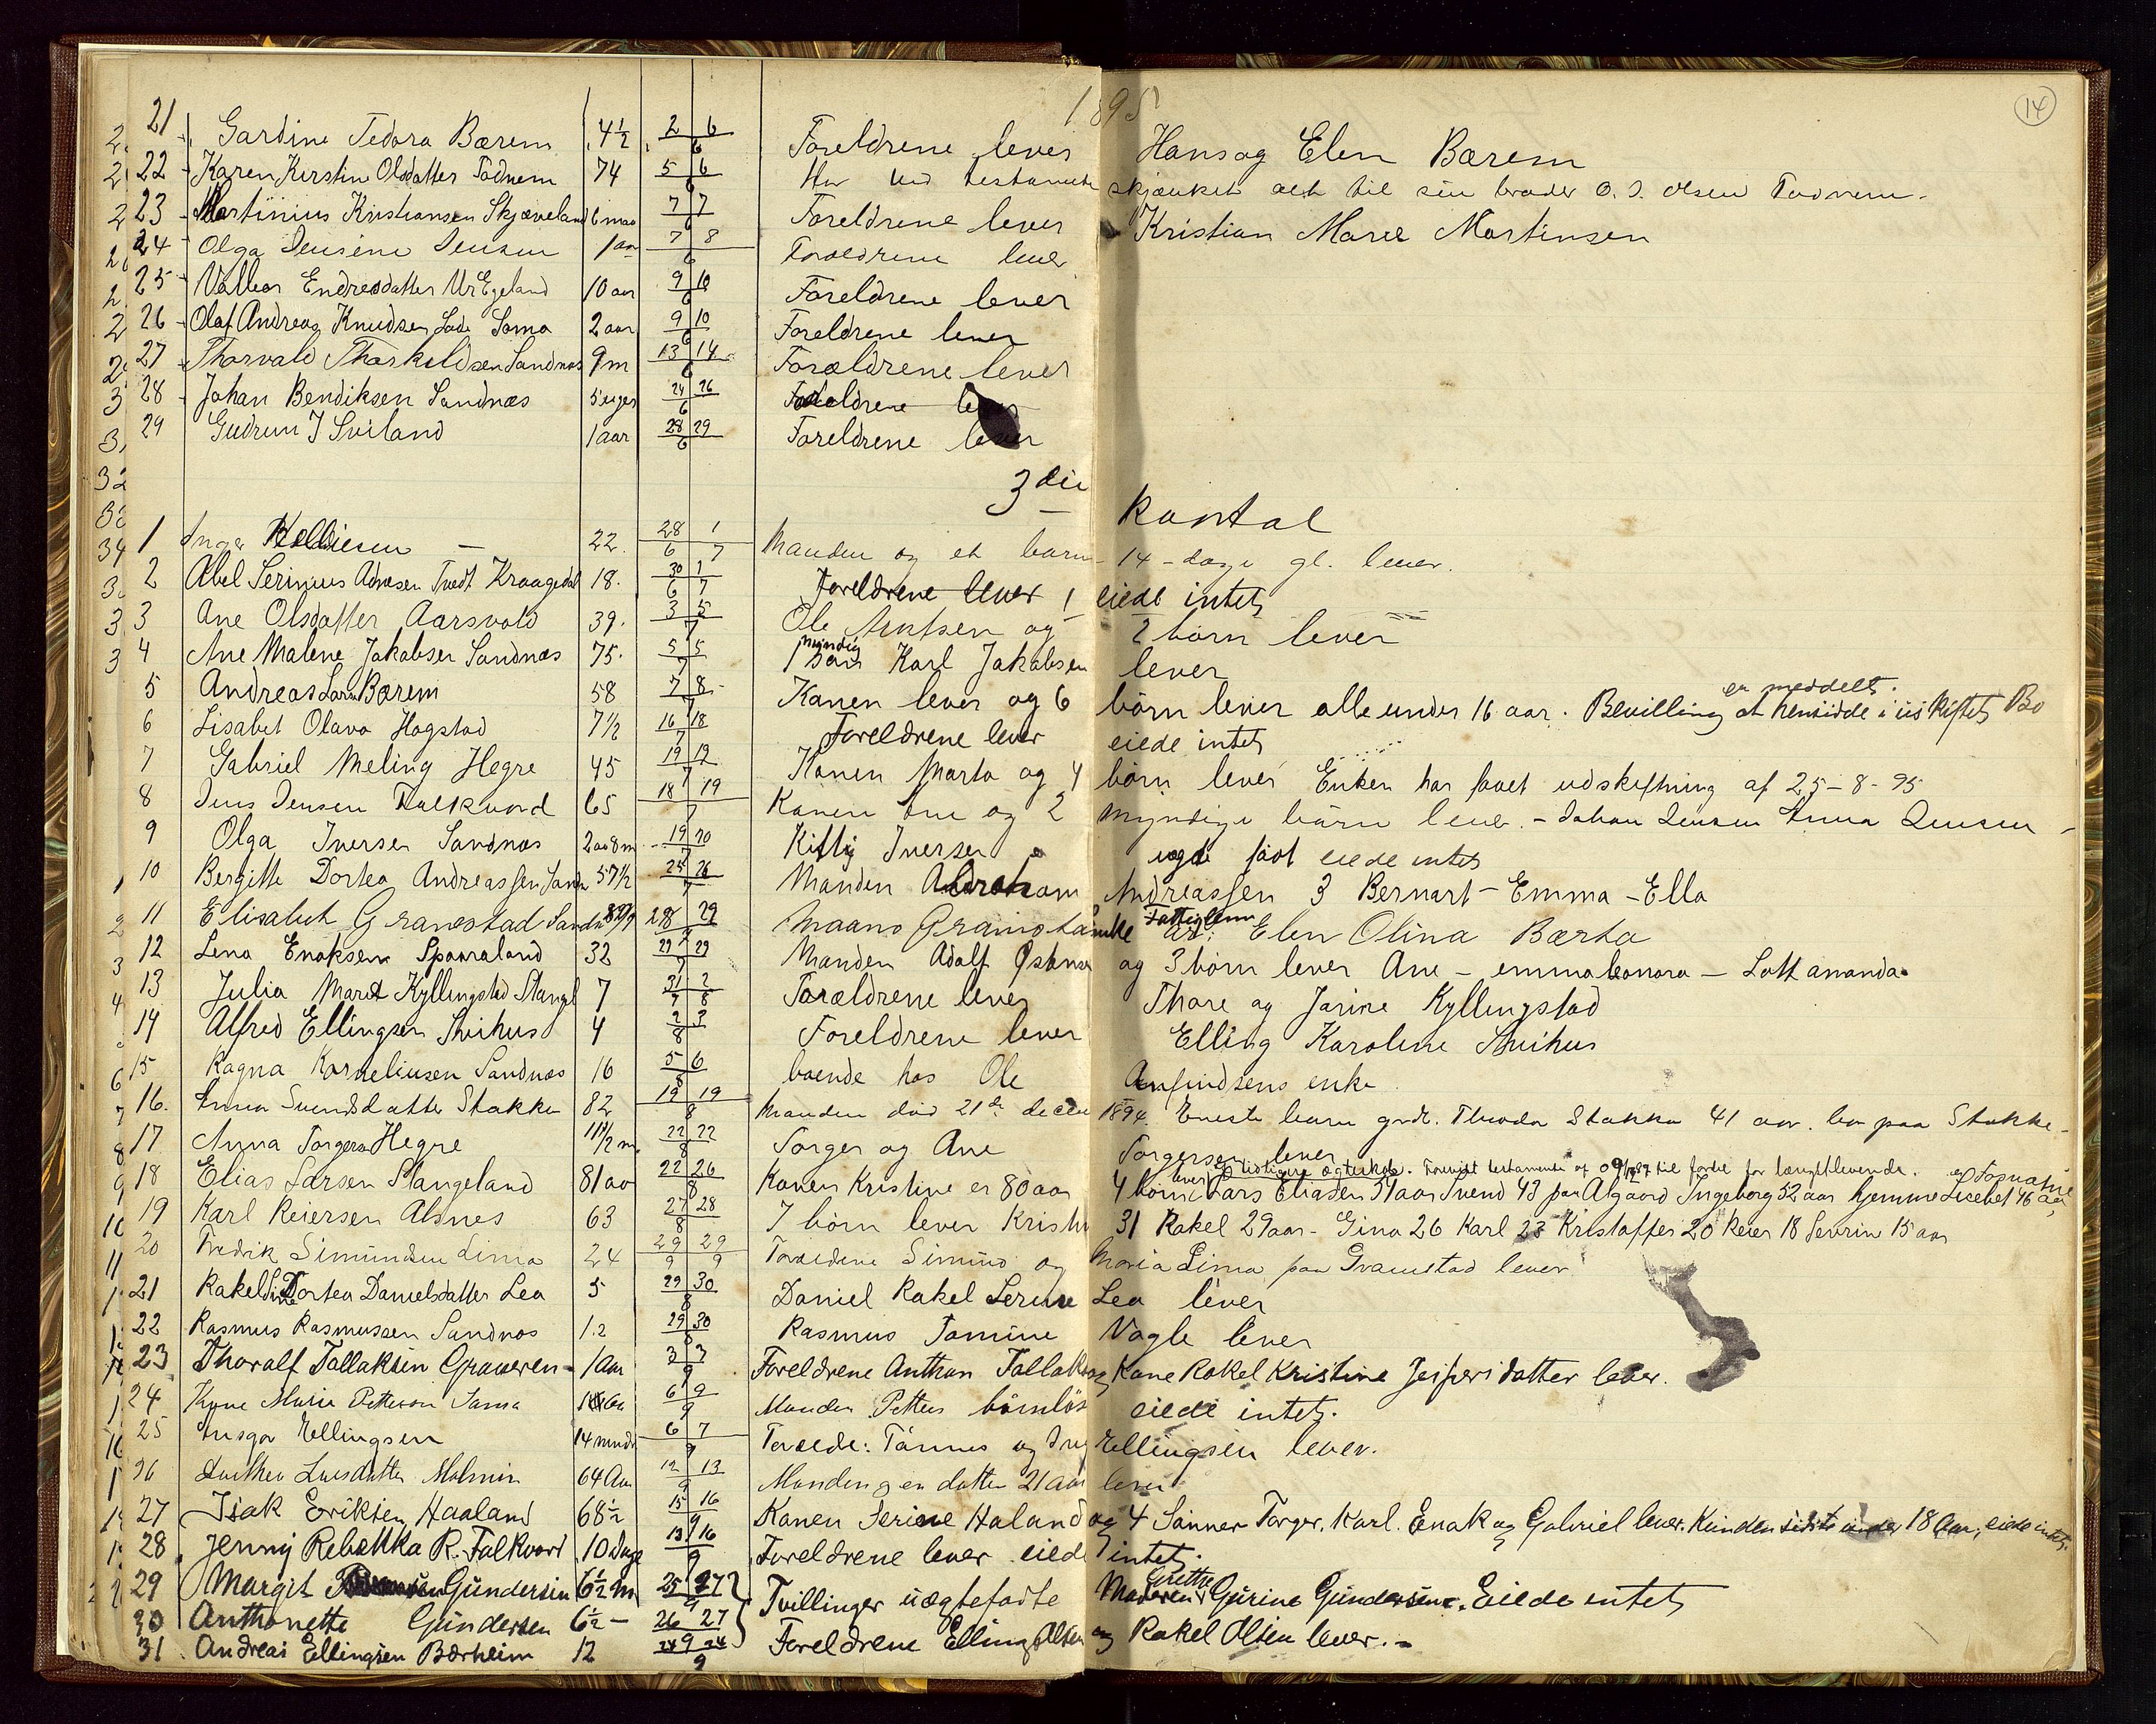 1895
14
21 Gardine Tedora Bærem 4½ 2/6 6 Foreldrene lever Hans og Elen Bærem
22 Karen Kirstine Olsdatter Todnem 74 5/6 6 Har ved testamente skjænket alt til sin broder O. J. Olsen Todnem.
23 Martinius Kristiansen Skjæveland 6 maa 7/7 6 Foreldrene lever Kristian Maree Martinsen
24 Olga Jensine Jensen 1 aar 7/8 6 Forældrene lever
25 Valbor Endresdatter Ur Egeland 10 aar 9/10 6 Foreldrene lever
26 Olaf Andreas Knudsen Soma 2 aar 9/10 6 Foreldrene lever
27 Thorvald Thorkildsen Sandnæs 9 m 13/14 6 Forældrene lever
28 Johan Bendiksen Sandnæs 5 uger 24/26 6 Foreldrene lever
29 Gudrun J Sviland 1 aar 28/29 6 Foreldrene lever
3die kvartal
1 Inger 22. 28/6 1/7 Manden og et barn 14-dage gl. lever.
2 Abel Serinius Tvedt Kraagedal 18. 30/6 1/7 Foreldrene lever eiede intet
3 Ane Olsdatter Aarsvold 39. 3/5 7 Ole Arntsen og 2 börn lever
4 Ane Malene Jakobsen Sandnæs 75. 5/5 7 1 myndig sön Karl Jakobsen lever
5 Andreas Larsen Bærem 58 7/8 7 Kanen lever og 6 börn lever alle under 16 aar. Bevilling er meddelt. at hensidde i uskiftet Bo
6 Lisabet Olava Hogstad 7½ 16/18 7 Foreldrene lever eiede intet
7 Gabriel Meling Hegre 45 7 Konen Marta og 4 börn lever Enken har faaet udskiftning af 25-8-95
8 Jens Jensen Falkvord 65 18/19 7 Konen Ane og 2 myndige börn lever. - Johan Jensen Anna Jensen -
9 Olga Iversen Sandnæs 2 aa 8 m 19/20 7 Kitty Iversen uægte födt eiede intet
10 Bergitte Dortea Andreassen 57½ 25/26 7 Manden Abraham Andreassen 3 Bernart - Emma - Ella
11 Elisabeth Gramstad 28/29 7 Maans Gramstad Fattiglem Elen Olina Bærta
12 Lena Enoksen 32 29/29 7 Manden Adolf og 3 börn lever Ane - emma leonora - Lott amanda
13 Julia Maret Kyllingstad Stangl 7 31/7 2/8 Forældrene lever Thore og Jorine Kyllingstad
14 Alfred Ellingsen 4 2/3 8 Foreldrene lever Elling Karoline
15 Ragna Korneliusen Sandnæs 16 5/6 8 boende hos Ole Anfindsens enke
16. Anna Svendsdatter Stokke 82 19/19 8 Manden död 21de decem 1894. Eneste barn Stokka 41 aar. bor paa Stokke.
17 Anna Torgersen Hegre 11½ m. 22/22 8 Torger og Ane Torgersen lever
18 Elias Larsen Stangeland 81 aa 22/26 8 Konen Kristine er 80 aar 4 börn lever Lars Eliasen 54 aar Svend 43 paa Algaard Ingeborg 52 aar hjemme Lisebet 46 aar
19 Karl Reiersen Alsnes 63 27/28 8 7 börn lever 31 Rakel 29 aar - Gina 26 Karl 23 Kristoffer 20 Reier 18 Sevrin 15 aar
20 Fredrik Simundsen Lima 24 29/29 9 Simund og Maria Lima paa Gramstad lever
21 Rakel Dortea Danielsdatter Lea 5 29/30 8 Daniel Rakel Serine Lea lever
22 Rasmus Rasmussen Sandnæs 12 29/30 8 Rasmus Tomine Vagle lever
23 Thoralf Tallaksen Graveren - 1 Aar 3/3 9 Foreldrene Anthon Tallaksen Kone Rakel Kristine Jespersdatter lever.
24 Marie Petterson Soma 6/9 9 Manden Petter börnlös eiede intet.
25 Ansgar Ellingsen 14 mnd 6/7 9 Forælde: Tönnes og Ellingsen lever.
26 Larsdatter Malmin 64 Aar 12/13 9 Manden og en datter 21 aar lever
27 Isak Eriksen Haaland 68½ 15/16 9 Konen Serine Haland og 4 Sönner Torger, Karl, Enok og Gabriel lever. Kun den sidste under 18 Aar, eiede intet.
28 Jenny Rebekka R. Falkvord 10 Dage 13/16 9 Foreldrene lever eiede intet.
29 Margit Gundersen 6½ M 25/27 9 Tvillinger uægtefödte Moderen Grethe Gurine Gundersen. Eiede intet
30 Anthonette Gundersen 6½ - 26/27 9
31 Andreas Ellingsen Bærheim 12 24/24 9 Foreldrene Elling Olsen og Rakel Olsen lever. -